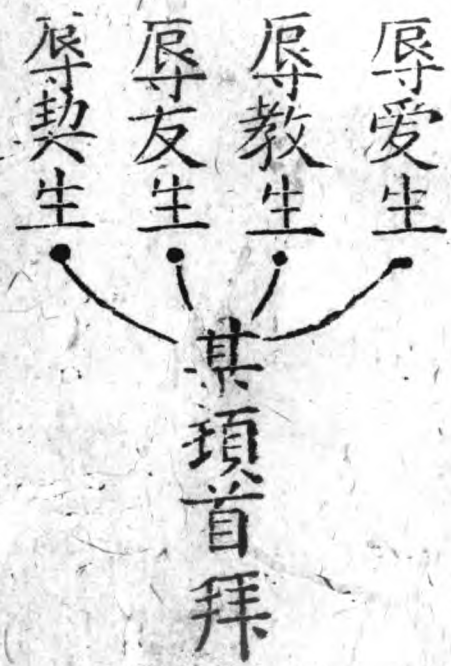 辱爱生
辱教生
辱友生
辱契生
某頊首拜